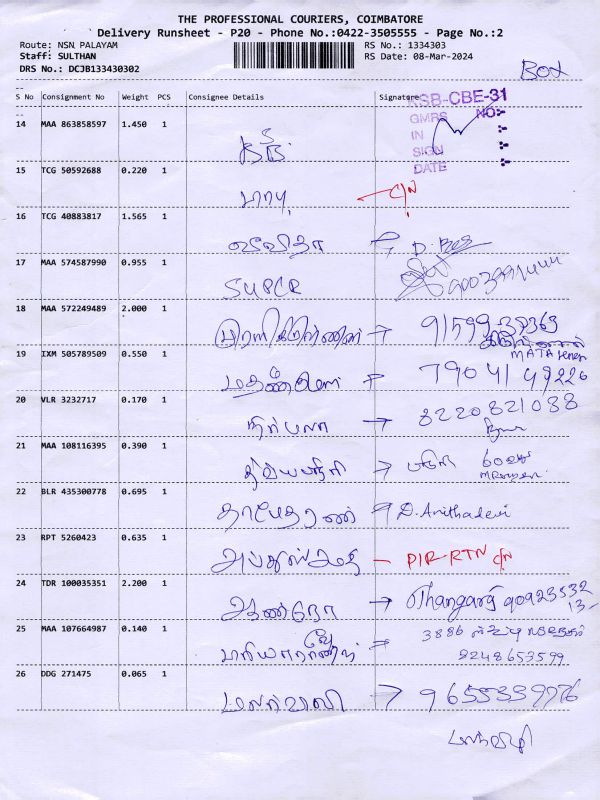 THE PROFESSIONAL COURIERS, COIMBATORE
Delivery Runsheet - P20 - Phone No.:0422-3505555 - Page No.:2
Route: NSN PALAYAM
RS No.: 1334303
Staff: SULTHAN
RS Date: 08-Mar-2024
DRS No.: DCJB133430302
Box
S No Consignment No Weight PCS Consignee Details Signature
KSB-CBE-31
GMRS NO:-
IN :-
SIGN :-
DATE :-
14 MAA 863858597 1.450 1
15 TCG 50592688 0.220 1
பாபு C/N
16 TCG 40883817 1.565 1
17 MAA 574587990 0.955 1
SUPER
18 MAA 572249489 2.000 1
முரளி கிருஷ்ணன் → 91599-37363
19 IXM 505789509 0.550 1
→ 7904149220
20 VLR 3232717 0.170 1
நிர்மலா → 8220821088
21 MAA 108116395 0.390 1
→
22 BLR 435300778 0.695 1
தாமோதரன் D. Anithadevi
23 RPT 5260423 0.635 1
அப்துல் சமது - PIR-RTN C/N
24 TDR 100035351 2.200 1
ஆனந்தோ → Thangaraj
25 MAA 107664987 0.140 1
3886
8248653599
26 DDG 271475 0.065 1
மலர்வாணி → 9655339776